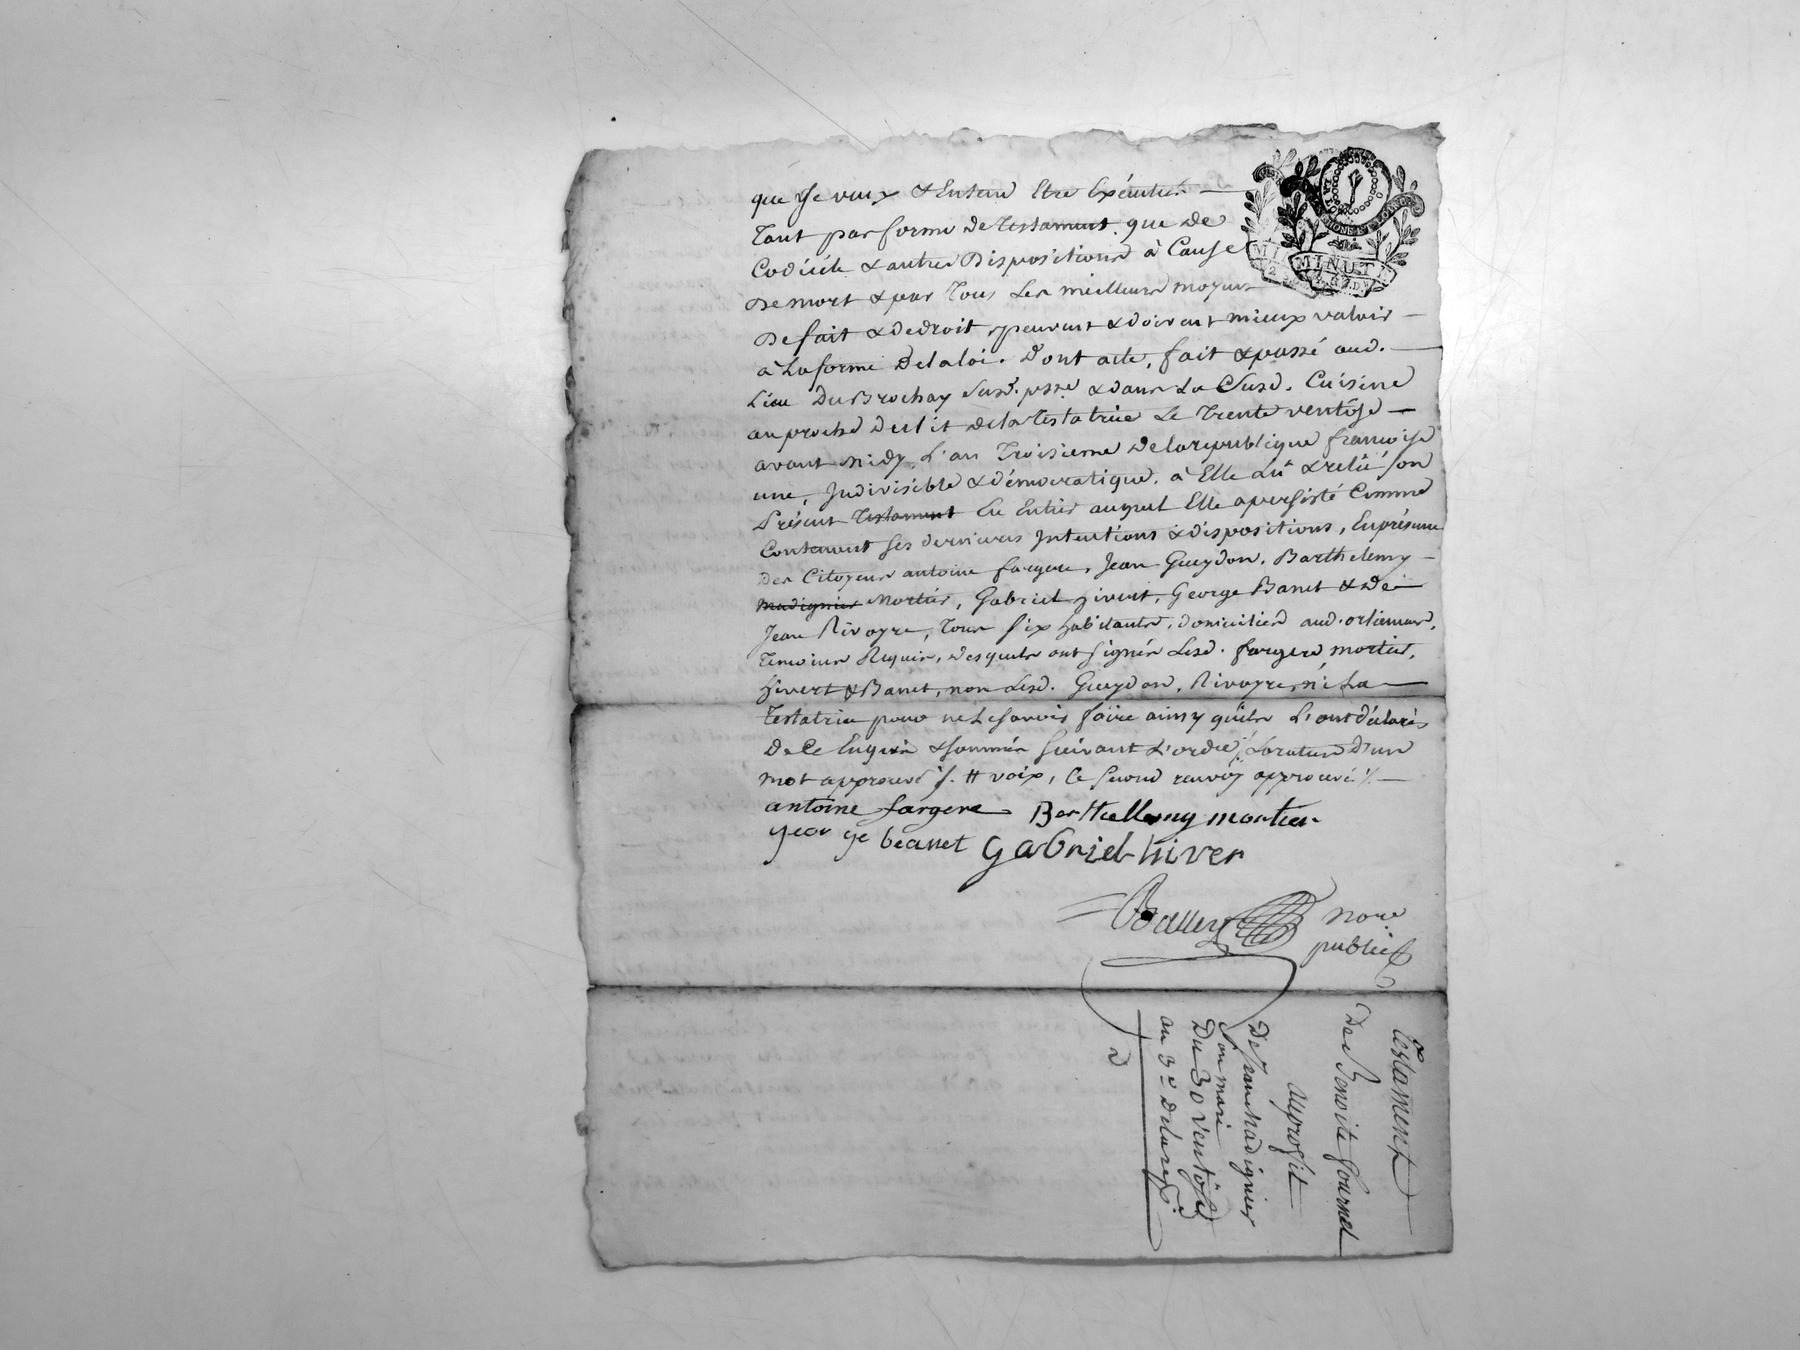 que Je veux & Entend Etre Exécutés
Tant par forme de Testament que de
Codicile & autres Dispositions à Cause
de mort & par Tous Les meilleurs moyens
de fait & de droit peuvent & doivent mieux valoir
à La forme De la loi. Dont acte, fait & passé aud.
Lieu Du Brochay & dans La Susd. Cuisine
au proche du lit de la Testatrice Le Trente ventôse
avant midy, L'an Troisieme de la republique francoise
une, Indivisible & démocratique. à Elle Lu & relû son
Présent Testament En Entier auquel Elle a persisté Comme
Contenant ses dernieres Intentions & dispositions, En présence
des Citoyens antoine fargere, Jean Gueydon, Barthelemy
madignier Mortier, Gabriel hivert, George Banet & de
Jean Rivoyre, Tous six habitants, domiciliés aud.
Temoins Requis, desquels ont signés Lesd. fargere, mortier,
hivert & Banet, non Lesd. Gueydon, Rivoyre, ni La
Testatrice pour ne Le savoir faire ainsy qu'ils L'ont déclarés
De Ce Enquis & sommés suivant L'ordce La rature d'un
mot approuvé voix, Ce second renvoy approuvé
antoine fargere Barthellemy mortier
geor ge beanet gabriel hiver
nore
public
LA LOI
MINUTE
Testament
De Benoite fournel
au profit
De Jean Madignier
son mari
Du 30 Ventôse
an 3e De la rep.